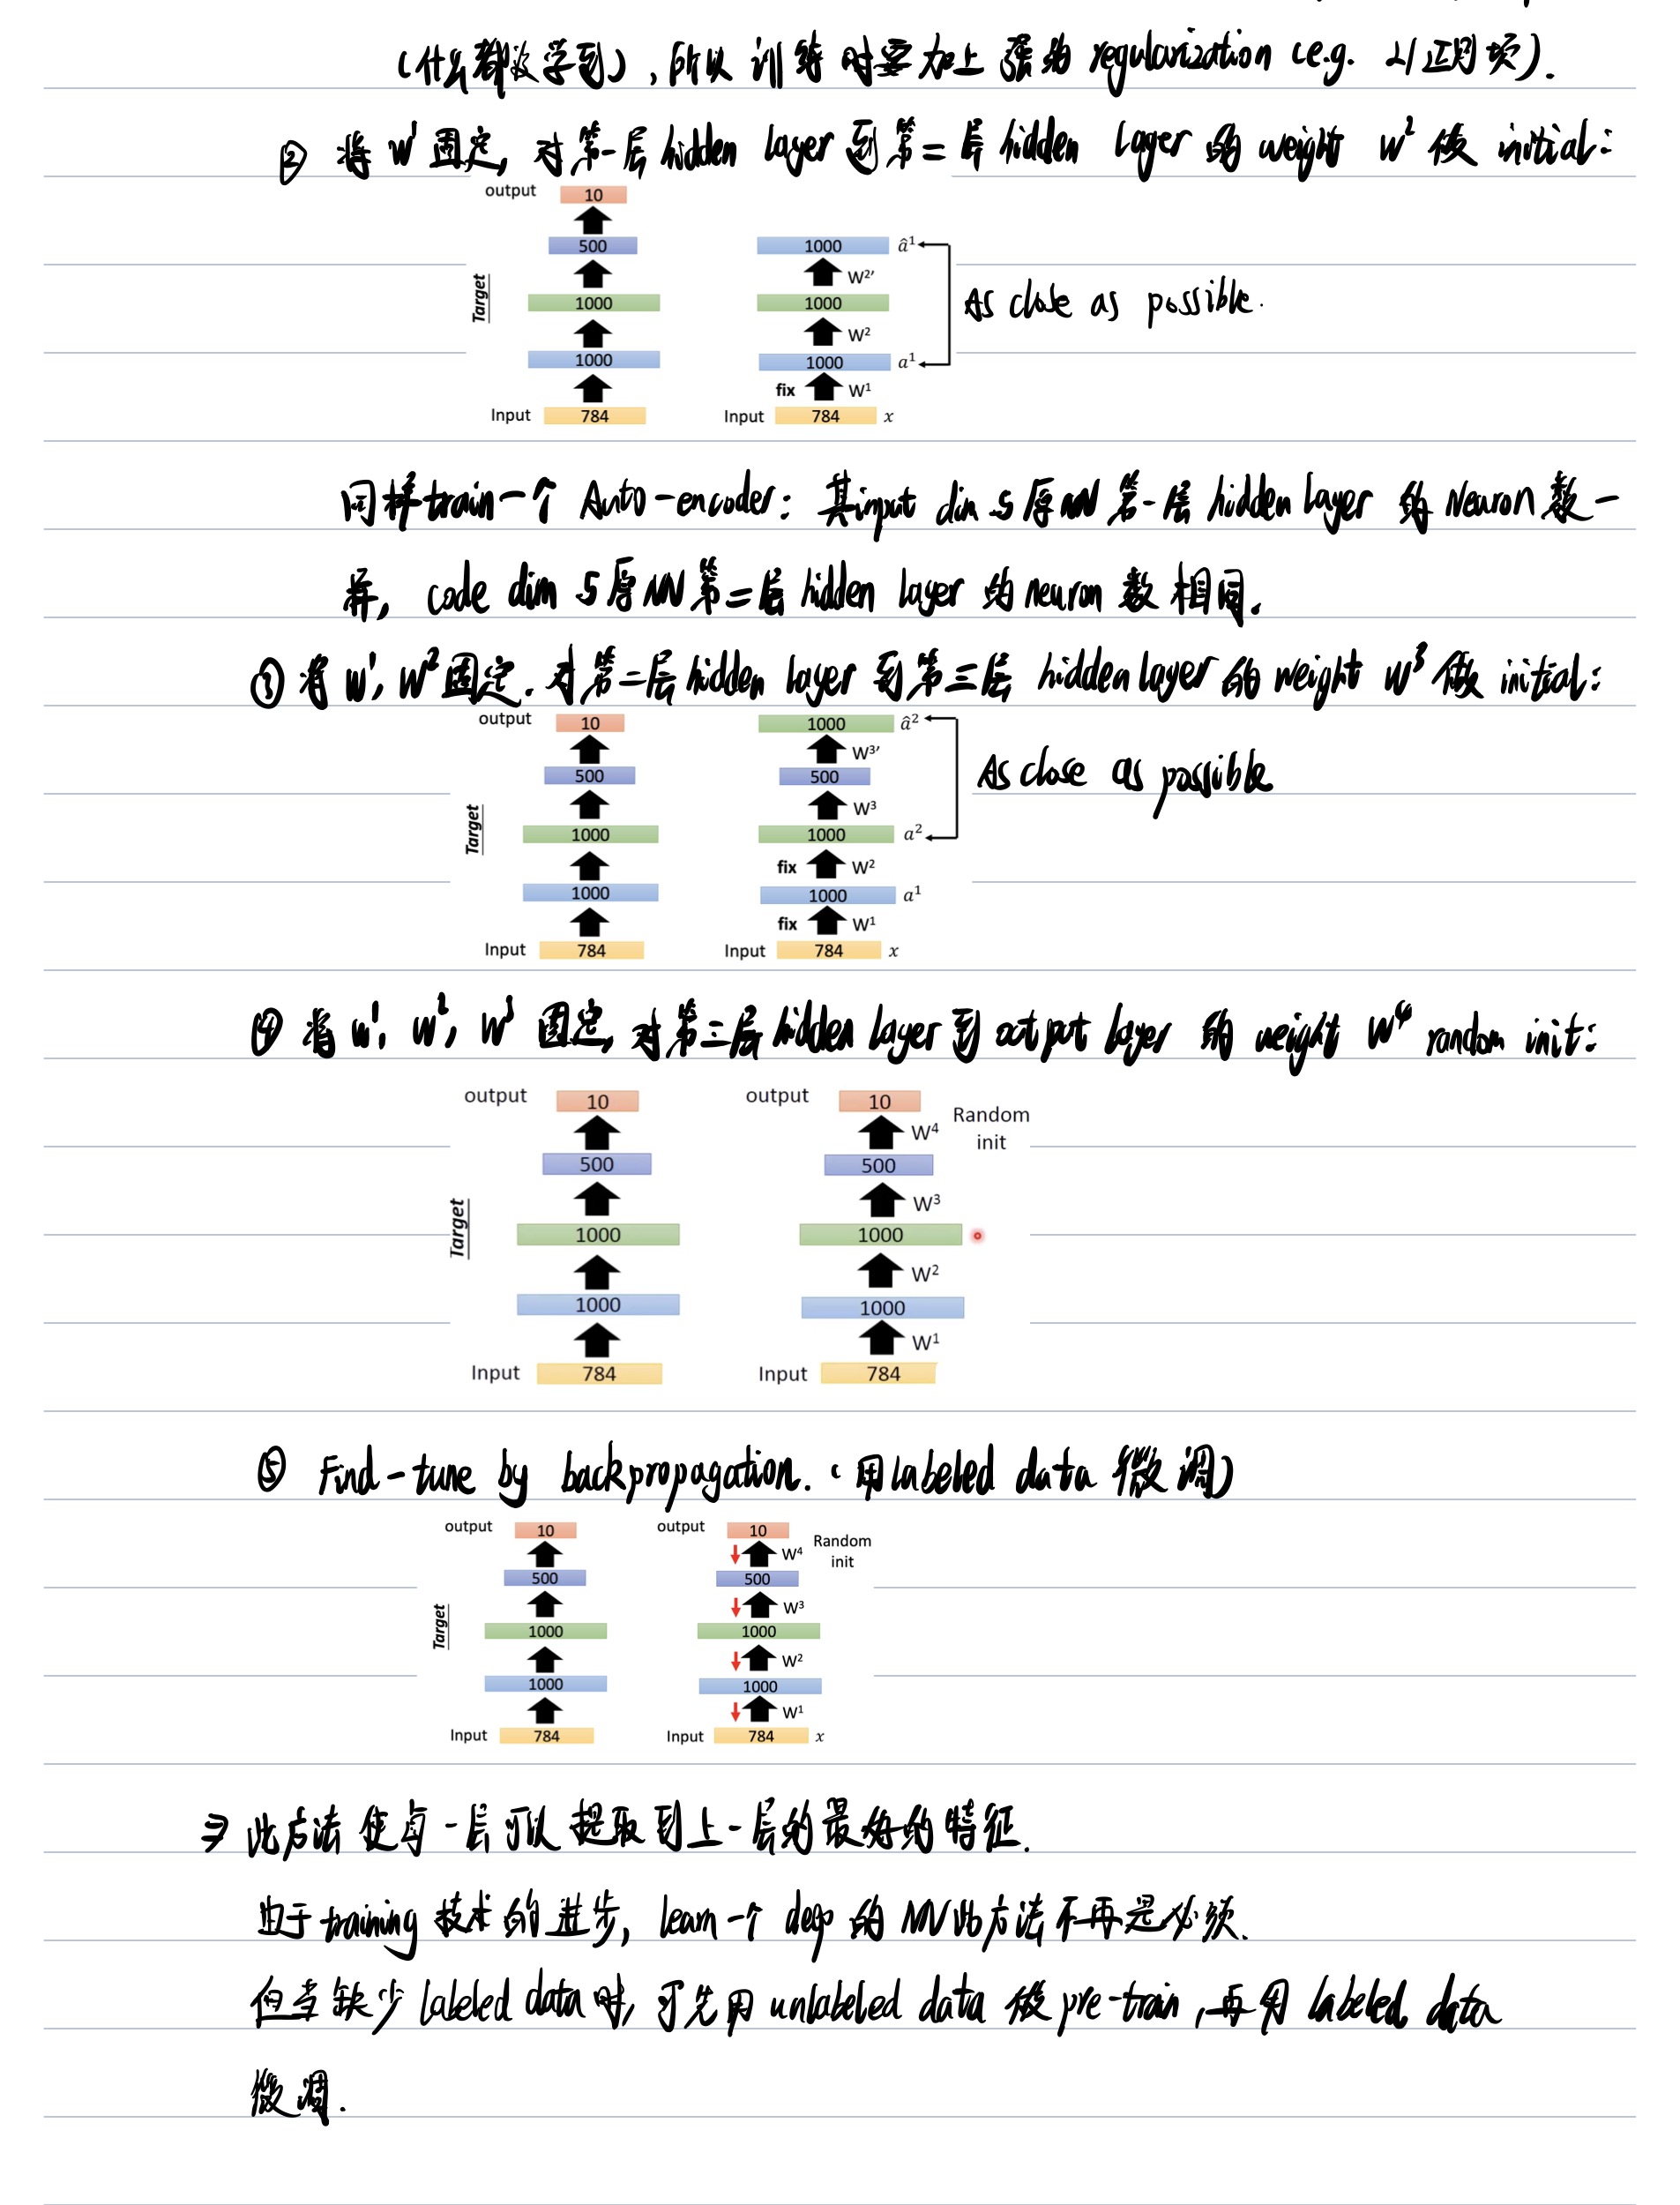 (什么都没学到), 所以训练时要加上强的 regularization (e.g. L1正则项).
② 将 W¹ 固定, 对第一层 hidden layer 到第二层 hidden layer 的 weight W² 做 initial:
output 10
500 1000 â¹
W²′
Target 1000 1000 As close as possible.
W²
1000 1000 a¹
fix W¹
Input 784 Input 784 x
同样 train 一个 Auto-encoder: 其 input dim 与原 NN 第一层 hidden layer 的 Neuron 数一
样, code dim 与原 NN 第二层 hidden layer 的 neuron 数相同.
③ 将 W¹, W² 固定. 对第二层 hidden layer 到第三层 hidden layer 的 weight W³ 做 initial:
output 10 1000 â²
W³′
500 500 As close as possible
W³
Target 1000 1000 a²
fix W²
1000 1000 a¹
fix W¹
Input 784 Input 784 x
④ 将 W¹, W², W³ 固定, 对第三层 hidden layer 到 output layer 的 weight W⁴ random init:
output 10 output 10 Random
W⁴ init
500 500
W³
Target 1000 1000
W²
1000 1000
W¹
Input 784 Input 784
⑤ Find-tune by backpropagation. (用 labeled data 微调)
output 10 output 10 Random
W⁴ init
500 500
W³
Target 1000 1000
W²
1000 1000
W¹
Input 784 Input 784 x
⇒ 此方法使每一层可以提取到上一层的最好的特征.
由于 training 技术的进步, learn 一个 deep 的 NN 此方法不再是必须.
但当缺少 labeled data 时, 可先用 unlabeled data 做 pre-train, 再用 labeled data
做调.